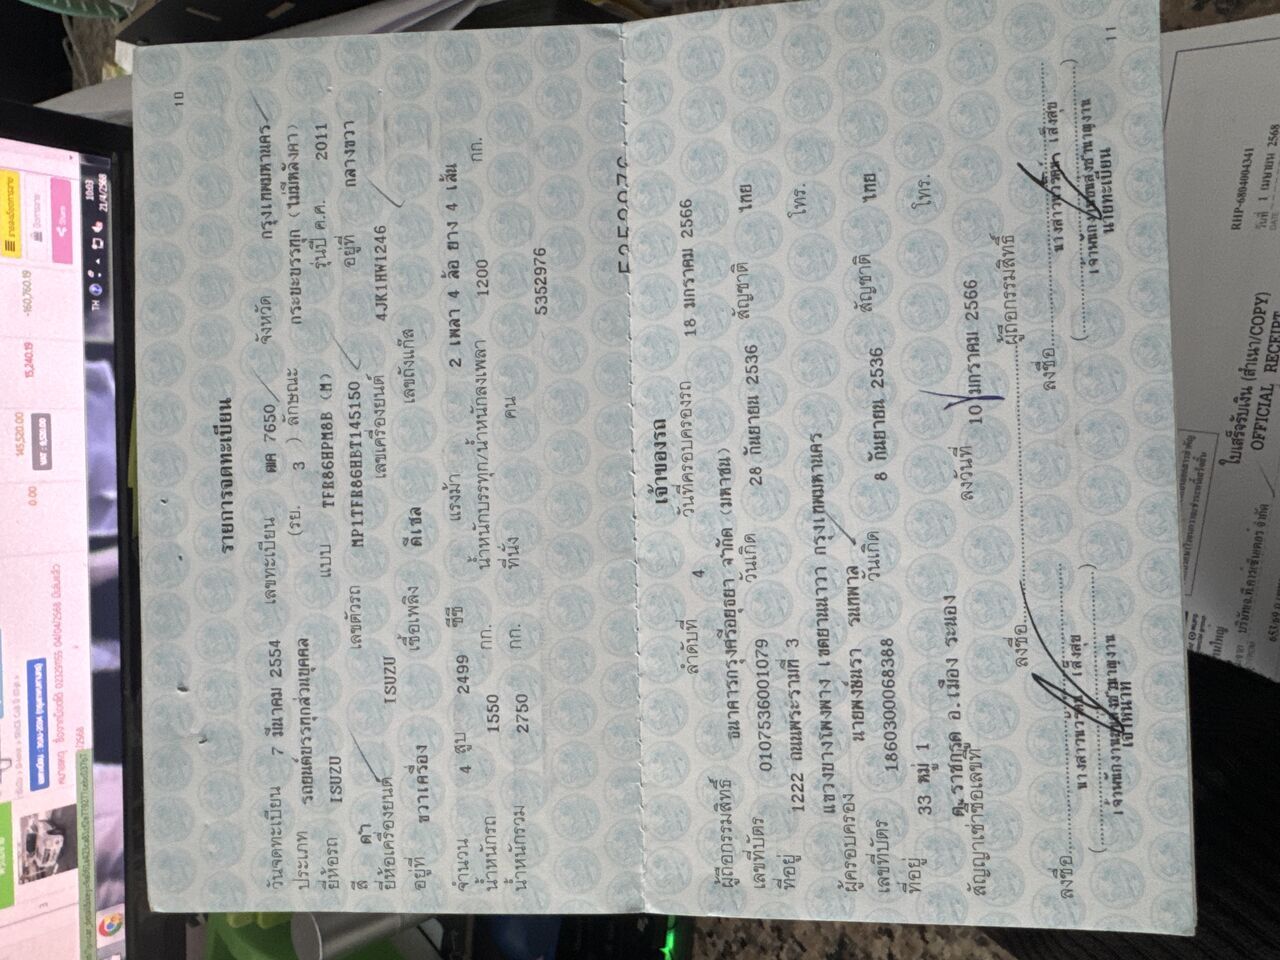 10
รายการจดทะเบียน
วันจดทะเบียน 7 มีนาคม 2554 เลขทะเบียน 7650 จังหวัด กรุงเทพมหานคร
ประเภท รถยนต์บรรทุกส่วนบุคคล (รย. 3 ) ลักษณะ กระบะบรรทุก (ไม่มีหลังคา)
ยี่ห้อรถ ISUZU แบบ TFR86HPM8B (M) รุ่นปี ค.ศ. 2011
สี ดำ เลขตัวรถ MP1TFR86HBT145150 อยู่ที่ กลางขวา
ยี่ห้อเครื่องยนต์ ISUZU เลขเครื่องยนต์ 4JK1HW1246
อยู่ที่ ขวาเครื่อง เชื้อเพลิง ดีเซล เลขถังแก๊ส
จำนวน 4 สูบ 2499 ซีซี แรงม้า 2 เพลา 4 ล้อ ยาง 4 เส้น
น้ำหนักรถ 1550 กก. น้ำหนักบรรทุก/น้ำหนักลงเพลา 1200 กก.
น้ำหนักรวม 2750 กก. ที่นั่ง คน
5352976
เจ้าของรถ
ลำดับที่ 4 วันที่ครอบครองรถ 18 มกราคม 2566
ผู้ถือกรรมสิทธิ์ ธนาคารกรุงศรีอยุธยา จำกัด (มหาชน)
เลขที่บัตร 0107536001079 วันเกิด 28 กันยายน 2536 สัญชาติ ไทย
ที่อยู่ 1222 ถนนพระรามที่ 3 โทร.
แขวงบางโพงพาง เขตยานนาวา กรุงเทพมหานคร
ผู้ครอบครอง นายพงชนรา รนกพาล
เลขที่บัตร 1860300068388 วันเกิด 8 กันยายน 2536 สัญชาติ ไทย
ที่อยู่ 33 หมู่ 1 โทร.
ต.ราชกรูด อ.เมือง ระนอง
สัญญาเช่าซื้อเลขที่ ลงวันที่ 10 มกราคม 2566
ลงชื่อ ผู้ถือกรรมสิทธิ์
ลงชื่อ ลงชื่อ
เจ้าหน้าที่ นายทะเบียน
11
RHP-6804004341
วันที่ 1 เมษายน 2568
ใบเสร็จรับเงิน (สำเนา/COPY)
OFFICIAL RECEIPT
TH
10:03
21/4/2568
Share
0.00 145,520.00 15,240.19 -160,760.19